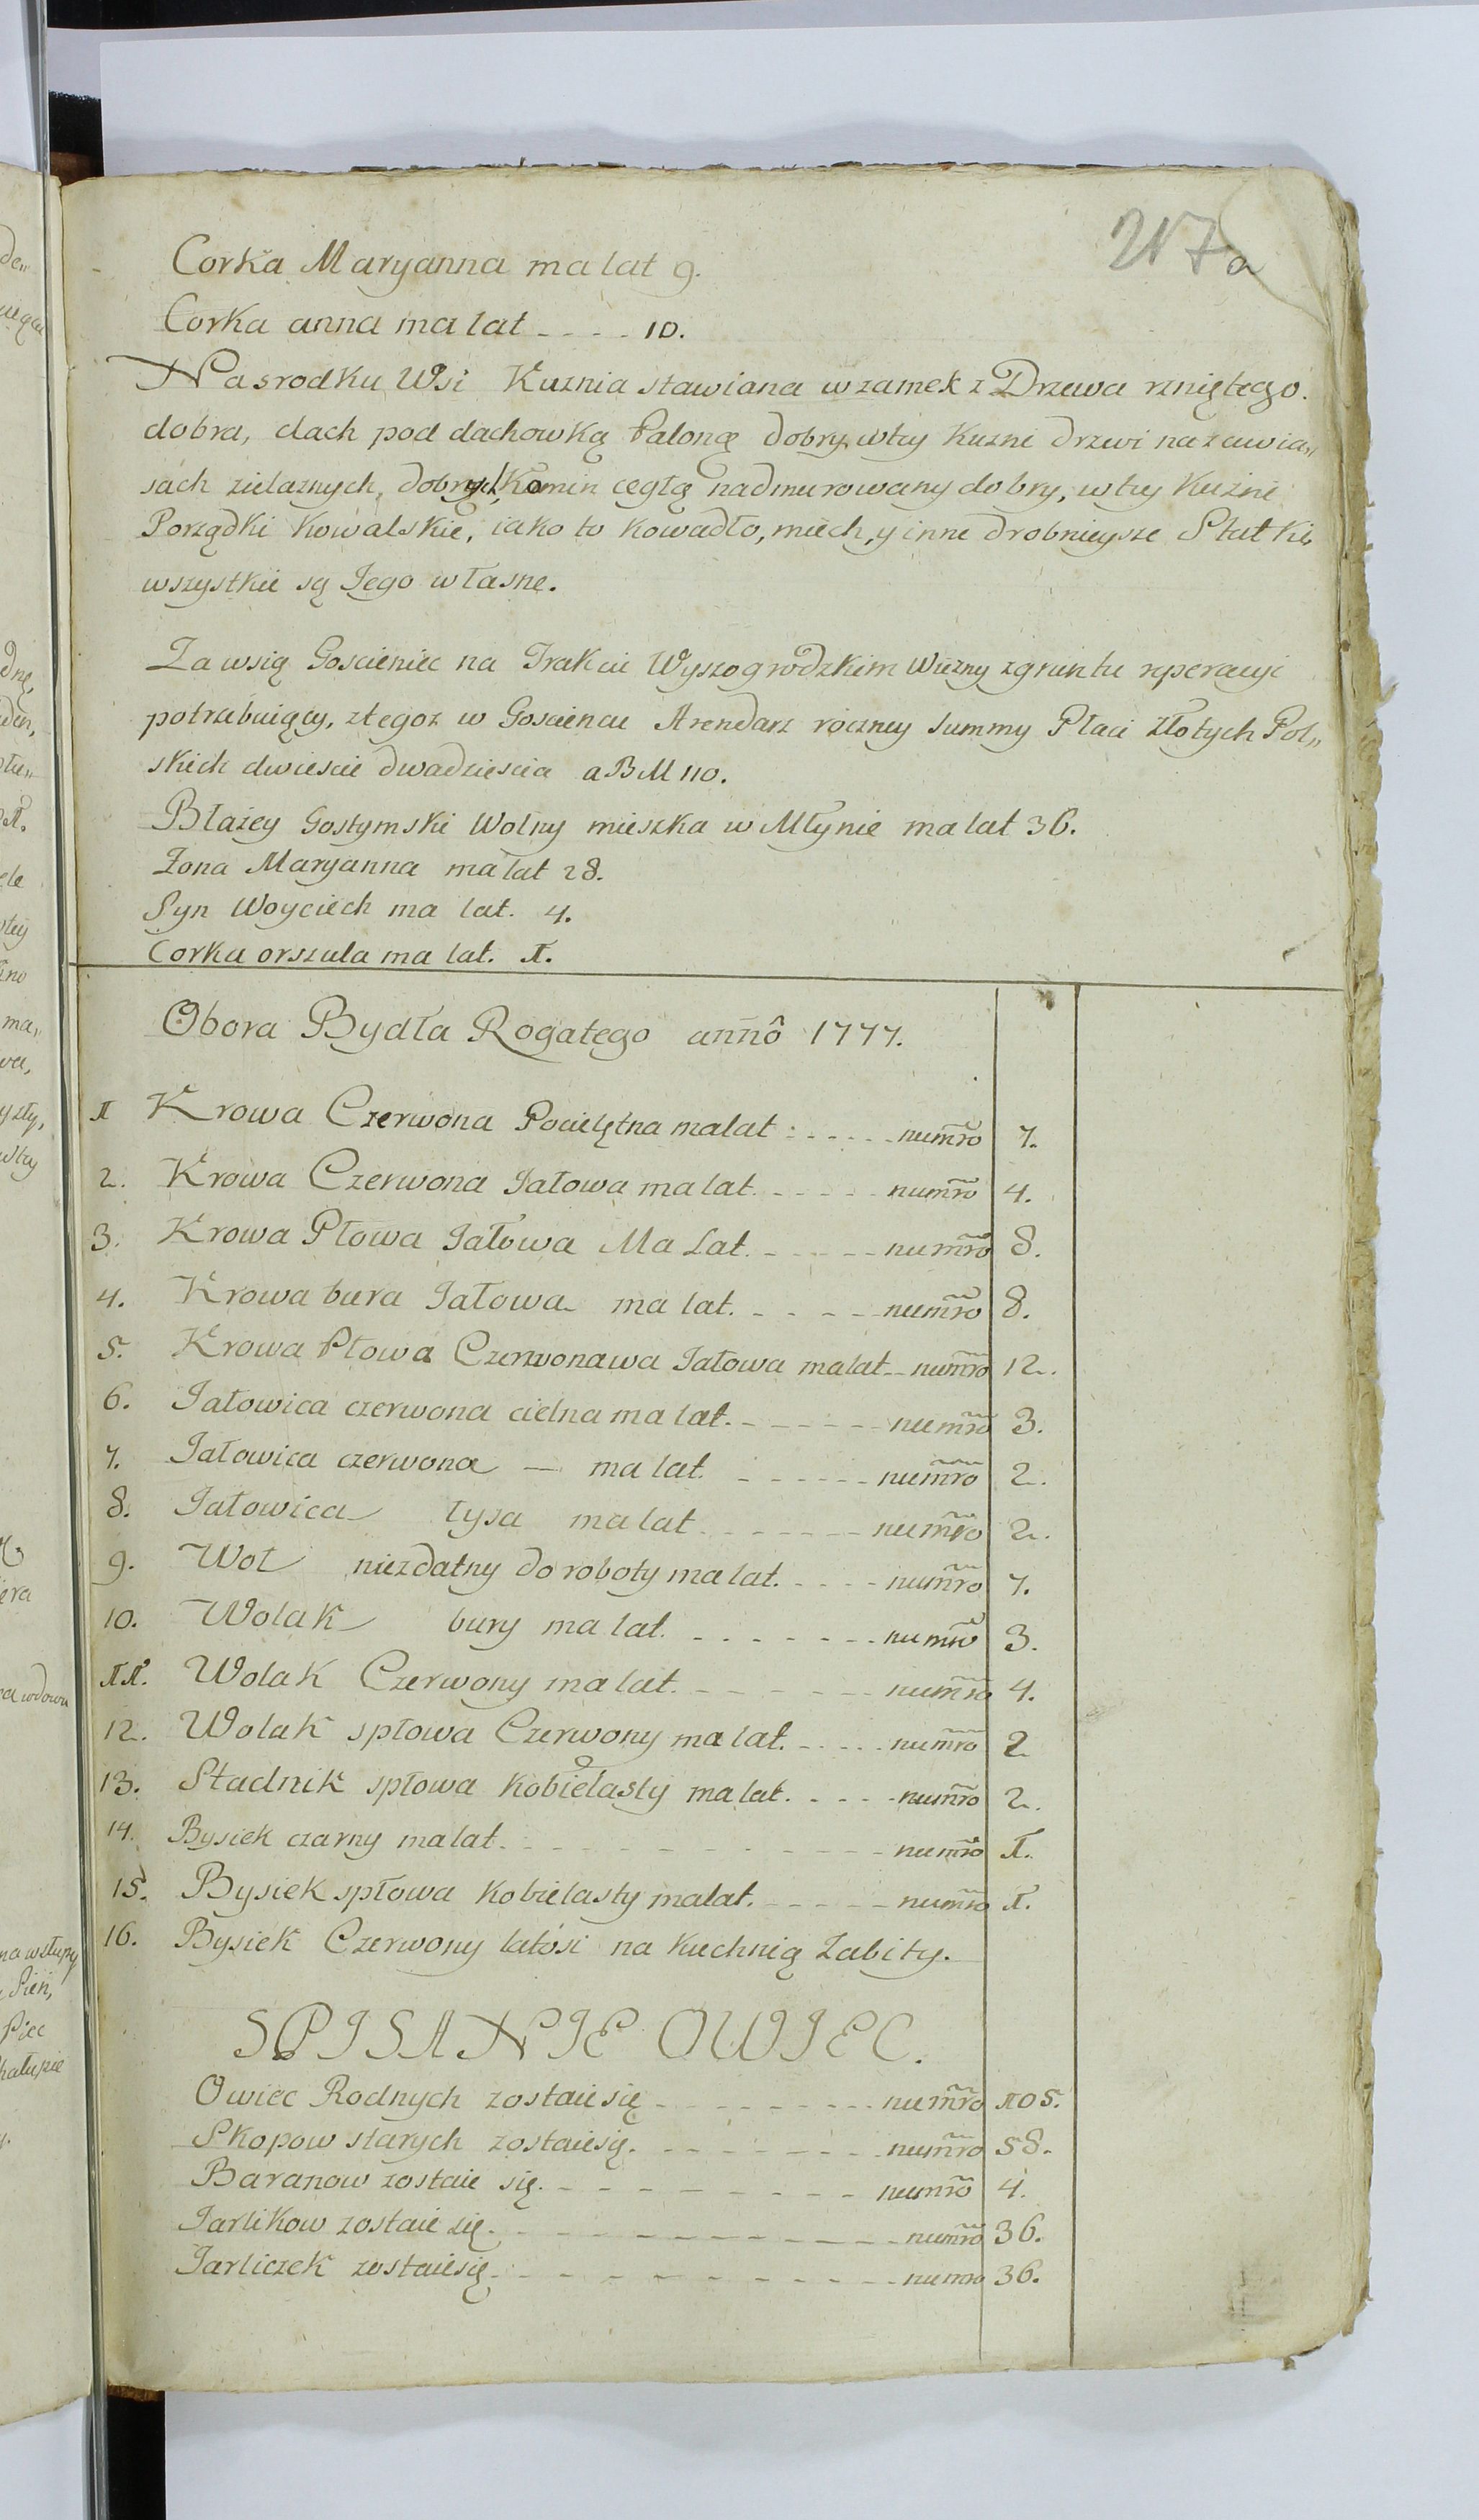 217a
Corka Maryanna ma lat 9.
Corka anna ma lat - - - - 10.
Na srodku Wsi Kuznia stawiana w zamek z Drzewa rzniętego.
dobra, dach pod dachowką Paloną dobry, wtey Kuzni drzwi na zawia„
sach zielaznych, dobrych, Komin cegłą nadmurowany dobry, wtey Kuzni
Porządki Kowalskie, iako to kowadło, miech, y inne drobnieysze Statki,
wszystkie są Jego własne.
Za wsią Goscieniec na Trakcie Wyszogrodzkim Wiezny zgruntu reperacyi
potrzebuiący, ztegoz w Goscieńcu Arendarz roczney summy Płaci Złotych Pol„
skich dwiescie dwadziescia aBM 110.
Błazey Gostymski Wolny mieszka w Młynie ma lat 36.
Zona Maryanna ma lat 28.
Syn Woyciech ma lat. 4.
Corka orszula ma lat. 1.
Obora Bydła Rogatego annô 1777.
1 Krowa Czerwona Pocielętna malat - - - - - num̃ro 7.
2. Krowa Czerwona Jałowa malat - - - - - num̃ro 4.
3. Krowa Płowa Jałowa Ma Lat. - - - - - num̃ro 8.
4. Krowa bura Jałowa ma lat. - - - - - num̃ro 8.
5. Krowa Płowa Czerwonawa Jałowa malat - - num̃ro 12.
6. Jałowica czerwona cielna ma lat. - - - - - - num̃ro 3.
7. Jałowica czerwona — ma lat. - - - - - - num̃ro 2.
8. Jałowica łysa malat - - - - - - - num̃ro 2.
9. Woł niezdatny do roboty ma lat. - - - - num̃ro 7.
10. Wolak bury ma lat. - - - - - - - num̃ro 3.
11. Wolak Czerwony ma lat. - - - - - - num̃ro 4.
12. Wolak spłowa Czerwony ma lat. - - - - - num̃ro 2
13. Stadnik spłowa kobielasty ma lat. - - - - num̃ro 2.
14. Bysiek czarny malat. - - - - - - - - - - - num̃ro 1.
15. Bysiek spłowa kobielasty malat. - - - - - num̃ro 1.
16. Bysiek Czerwony latosi na Kuchnią Zabity.
SPISANIE OWIEC.
Owiec Rodnych zostaie się - - - - - - - - - num̃ro 105.
Skopow starych zostaiesię. - - - - - - - - num̃ro 58.
Baranow zostaie się. - - - - - - - - - num̃ro 4.
Jarlikow zostaie się. - - - - - - - - - - - num̃ro 36.
Jarliczek zostaiesię. - - - - - - - - - - - numro 36.